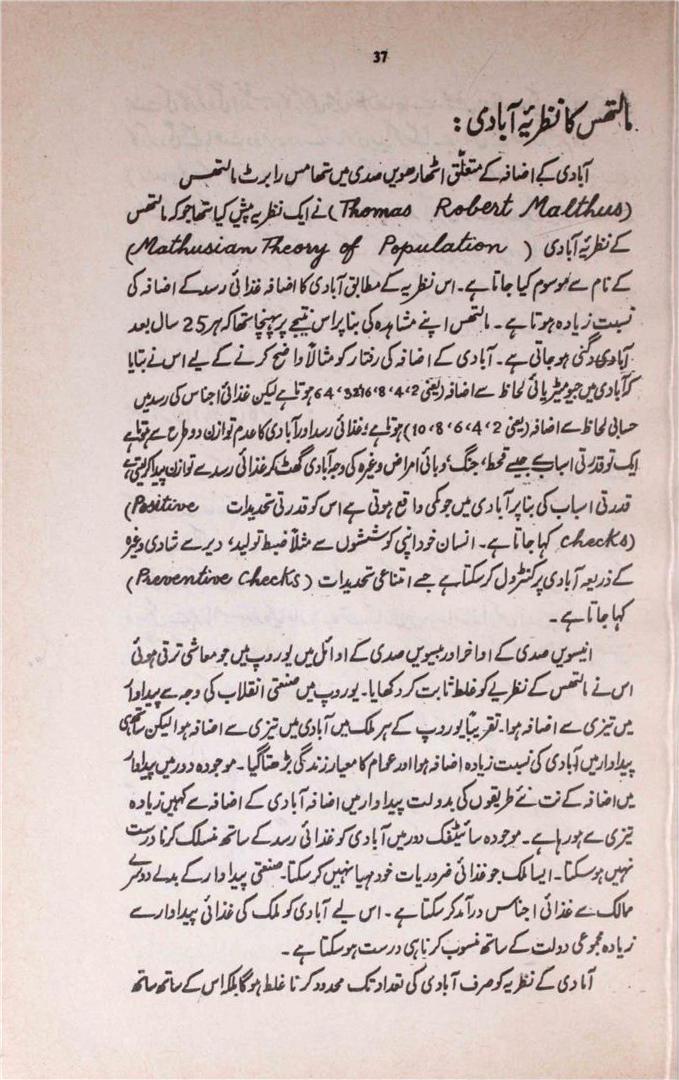 37
مالتھس کا نظریۂ آبادی :
آبادی کے اضافہ کے متعلق اٹھارھویں صدی میں تھامس رابرٹ مالتھس
(Thomas Robert Malthus) نے ایک نظریہ پیش کیا تھا جو کہ مالتھس
کے نظریۂ آبادی (Mathusian Theory of Population)
کے نام سے موسوم کیا جاتا ہے۔ اس نظریہ کے مطابق آبادی کا اضافہ غذائی رسد کے اضافہ کی
نسبت زیادہ ہوتا ہے۔ مالتھس اپنے مشاہدہ کی بنا پر اس نتیجے پر پہنچا تھا کہ ہر 25 سال بعد
آبادی دگنی ہو جاتی ہے۔ آبادی کے اضافہ کی رفتار کو مثالاً واضح کرنے کے لیے اس نے بتایا
کہ آبادی میں جیومیٹریائی لحاظ سے اضافہ (یعنی 2، 4، 8، 16، 32، 64 ہوتا ہے لیکن غذائی اجناس کی رسد میں
حسابی لحاظ سے اضافہ (یعنی 2، 4، 6، 8، 10) ہوتا ہے؛ غذائی رسد اور آبادی کا عدم توازن دو طرح سے ہوتا ہے
ایک تو قدرتی اسباب سے جیسے قحط، جنگ، وبائی امراض وغیرہ کی وجہ آبادی گھٹ کر غذائی رسد سے توازن پیدا کرلیتی ہے
قدرتی اسباب کی بنا پر آبادی میں جو کمی واقع ہوتی ہے اس کو قدرتی تحدیدات (Positive
checks) کہا جاتا ہے۔ انسان خود اپنی کوششوں سے مثلاً ضبط تولید، دیر سے شادی وغیرہ
کے ذریعہ آبادی پر کنٹرول کر سکتا ہے جسے امتناعی تحدیدات (Preventive Checks)
کہا جاتا ہے۔
انیسویں صدی کے اواخر اور بیسویں صدی کے اوائل میں یوروپ میں جو معاشی ترقی ہوئی
اس نے مالتھس کے نظریے کو غلط ثابت کر دکھایا۔ یوروپ میں صنعتی انقلاب کی وجہ سے پیداوار
میں تیزی سے اضافہ ہوا۔ تقریباً یوروپ کے ہر ملک میں آبادی میں تیزی سے اضافہ ہوا لیکن ساتھ ہی
پیداوار میں آبادی کی نسبت زیادہ اضافہ ہوا اور عوام کا معیار زندگی بڑھتا گیا۔ موجودہ دور میں پیداوار
میں اضافہ کے نت نئے طریقوں کی بدولت پیداوار میں اضافہ آبادی کے اضافے سے کہیں زیادہ
تیزی سے ہو رہا ہے۔ موجودہ سائنٹفک دور میں آبادی کو غذائی رسد کے ساتھ منسلک کرنا درست
نہیں ہو سکتا۔ ایسا ملک جو غذائی ضروریات خود مہیا نہیں کر سکتا۔ صنعتی پیداوار کے بدلے دوسرے
ممالک سے غذائی اجناس درآمد کر سکتا ہے۔ اس لیے آبادی کو ملک کی غذائی پیداوار سے
زیادہ مجموعی دولت کے ساتھ منسوب کرنا ہی درست ہو سکتا ہے۔
آبادی کے نظریہ کو صرف آبادی کی تعداد تک محدود کرنا غلط ہوگا بلکہ اس کے ساتھ ساتھ